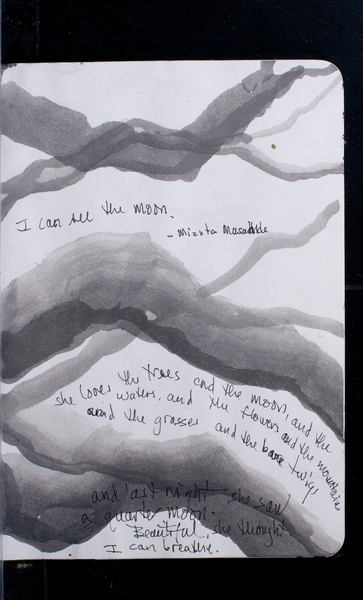 I can see the moon.
- Mizuta Masahide
she loves the trees and the moon, and the
waters, and the flowers and the mountains
and the grasses and the bare twigs
and last night she saw
a quarter moon.
Beautiful, she thought.
I can breathe.